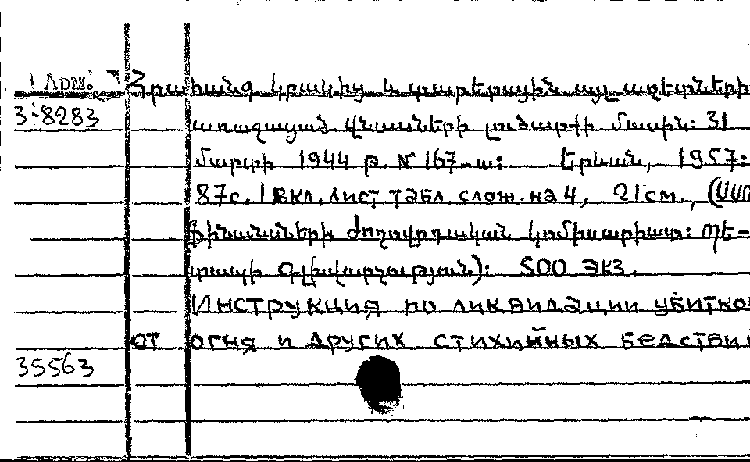 1 Арм. Հրահանգ կրակից և տարերային այլ աղետների
3-8283 առաջացած վնասների լուծարքի մասին: 31
մարտի 1944 թ. N 167-ա: Երևան, 1957:
87с. 1 вкл. лист табл. слож. на 4, 21 см., (ՍՍՌ
ֆինանսների ժողովրդական կոմիսարիատ: Պե-
տապի Գլխվարչություն): 500 экз.
Инструкция по ликвидации убытко
от огня и других стихийных бедстви
35563